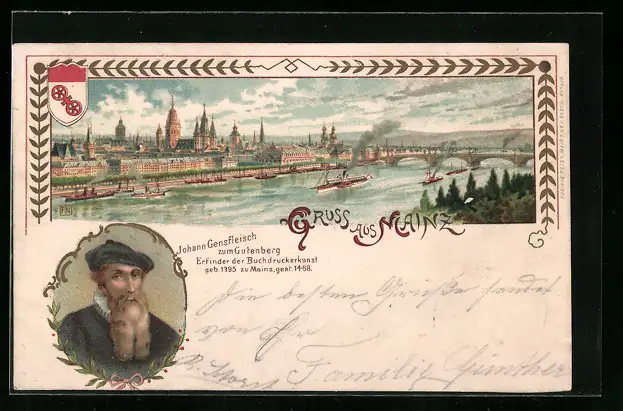 GRUSS AUS MAINZ
Johann Gensfleisch
zum Gutenberg
Erfinder der Buchdruckerkunst
geb. 1395 zu Mainz, gest. 1468.
Die besten Grüße sendet
von
Familie Günther